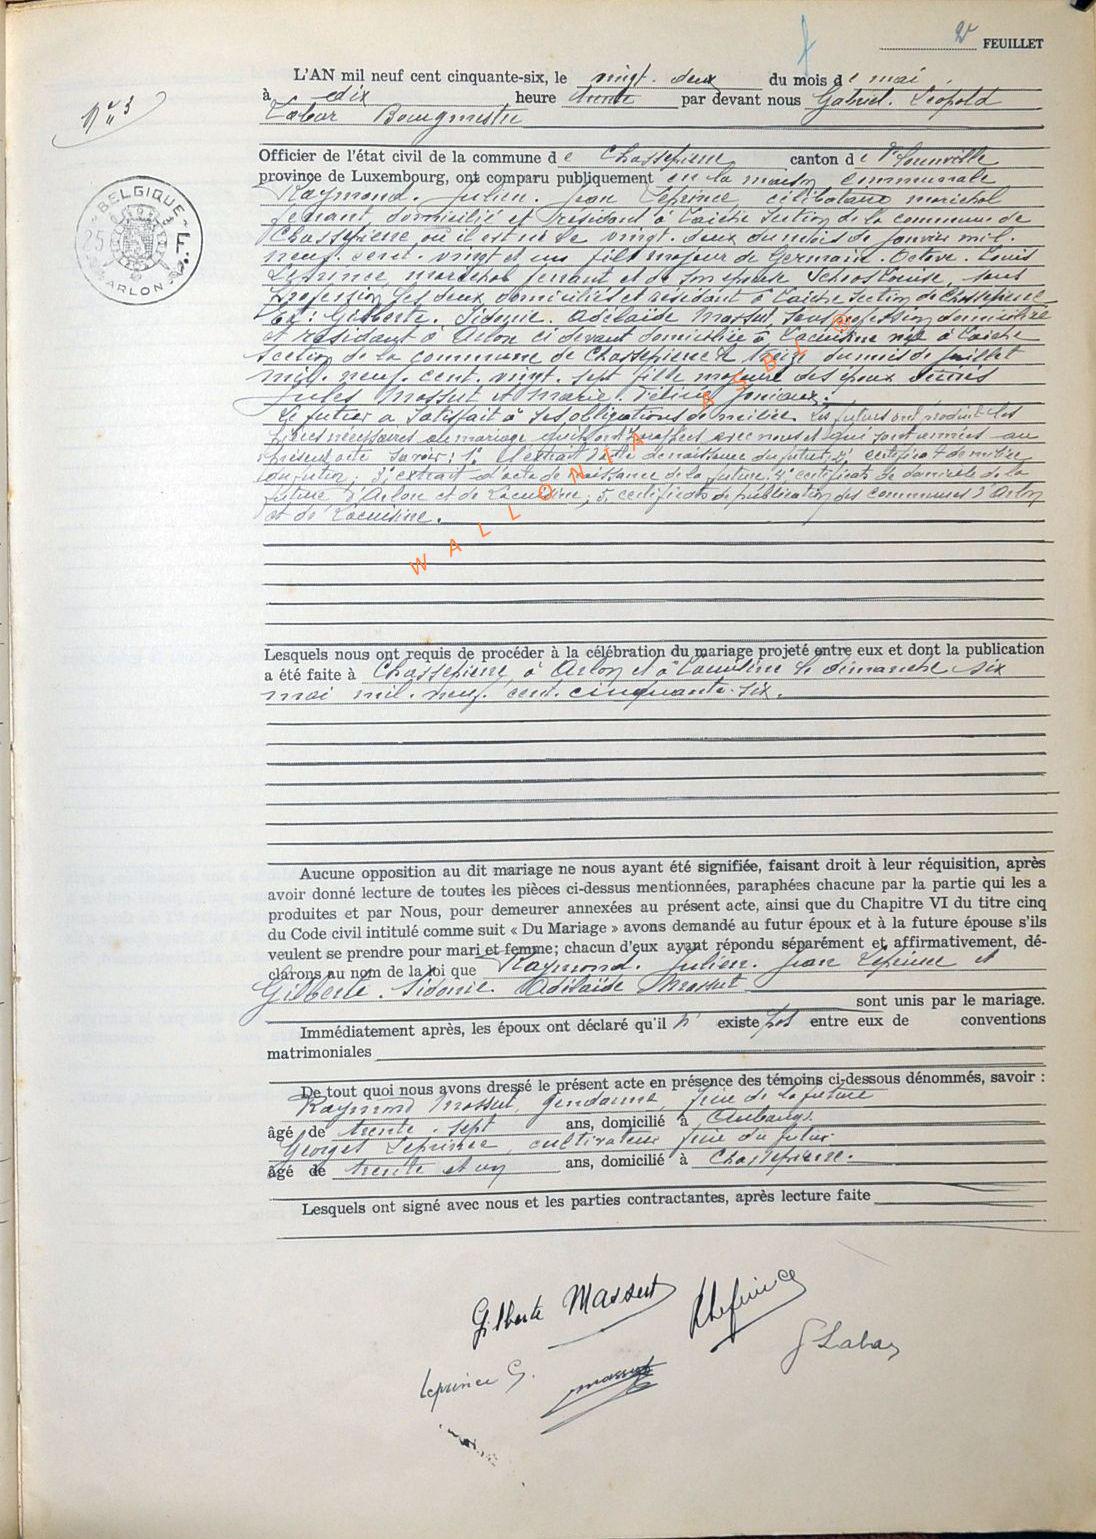 2e FEUILLET
L'AN mil neuf cent cinquante-six, le vingt-deux du mois de mai
à dix heure trente par devant nous Gabriel. Léopold
Labar Bourgmestre
N° 3
Officier de l'état civil de la commune de Chassepierre canton de Florenville
province de Luxembourg, ont comparu publiquement en la maison communale
Raymond. Julien. Jean Leprince, célibataire maréchal
ferrant domicilié et résidant à Laiche section de la commune de
Chassepierre où il est né le vingt-deux du mois de janvier mil.
neuf. cent. vingt et un fils majeur de Germain. Octave. Louis
Leprince, maréchal ferrant et de son épouse Louise, sans
profession, les deux domiciliés et résidant à Laiche section de Chassepierre
Et: Gilberte. Sidonie. Adelaïde Massut, sans profession domiciliée
et résidant à Arlon ci devant domiciliée à Lacuisine née à Laiche
section de la commune de Chassepierre le treize du mois de juillet
mil. neuf. cent. vingt. sept fille majeure des époux décédés
Jules Massut et Marie.
Le futur a satisfait à ses obligations de milice. Les futurs ont produit les
pièces nécessaires au mariage qu'ils ont paraphées avec nous et qui sont annexées au
présent acte savoir: 1° extrait d'acte de naissance du futur, 2° certificat de milice
du futur, 3° extrait d'acte de naissance de la future, 4° certificats de domicile de la
future d'Arlon et de Lacuisine, 5° certificats de publication des communes d'Arlon
et de Lacuisine.
BELGIQUE
25 F.
ARLON
WALLONIA ASBL ®
Lesquels nous ont requis de procéder à la célébration du mariage projeté entre eux et dont la publication
a été faite à Chassepierre, à Arlon et à Lacuisine le dimanche six
mai mil. neuf. cent. cinquante. six.
Aucune opposition au dit mariage ne nous ayant été signifiée, faisant droit à leur réquisition, après
avoir donné lecture de toutes les pièces ci-dessus mentionnées, paraphées chacune par la partie qui les a
produites et par Nous, pour demeurer annexées au présent acte, ainsi que du Chapitre VI du titre cinq
du Code civil intitulé comme suit « Du Mariage » avons demandé au futur époux et à la future épouse s'ils
veulent se prendre pour mari et femme; chacun d'eux ayant répondu séparément et affirmativement, dé-
clarons au nom de la loi que Raymond. Julien. Jean Leprince et
Gilberte. Sidonie. Adélaïde Massut
sont unis par le mariage.
Immédiatement après, les époux ont déclaré qu'il n' existe pas entre eux de conventions
matrimoniales
De tout quoi nous avons dressé le présent acte en présence des témoins ci-dessous dénommés, savoir :
Raymond Massut, gendarme, frère de la future
âgé de trente. sept ans, domicilié à Aubange
Georges Leprince, cultivateur frère du futur
âgé de trente et un ans, domicilié à Chassepierre.
Lesquels ont signé avec nous et les parties contractantes, après lecture faite
Gilberte Massut RLeprince
G Labar
Leprince G. Massut